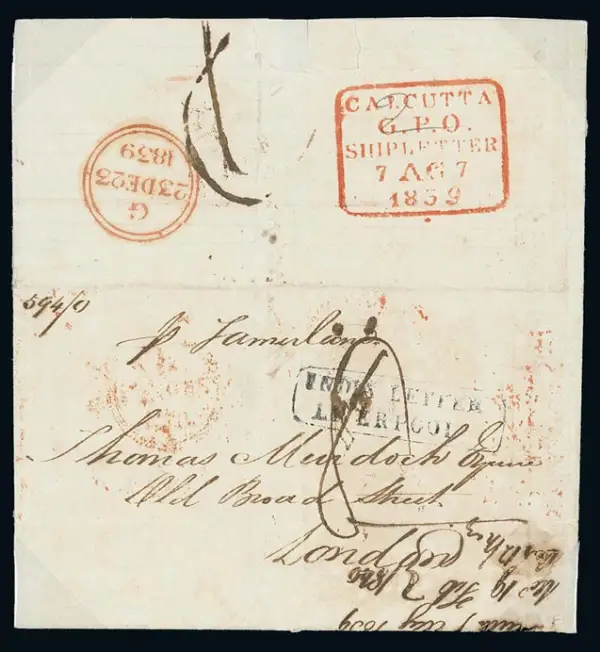 CALCUTTA
G.P.O.
SHIPLETTER
7 AG 7
1839
G
23DE23
1839
594/0
p Tamerlane
INDIA LETTER
LIVERPOOL
Thomas Murdoch Esquire
Old Broad Street
London
1839
Feb 1840